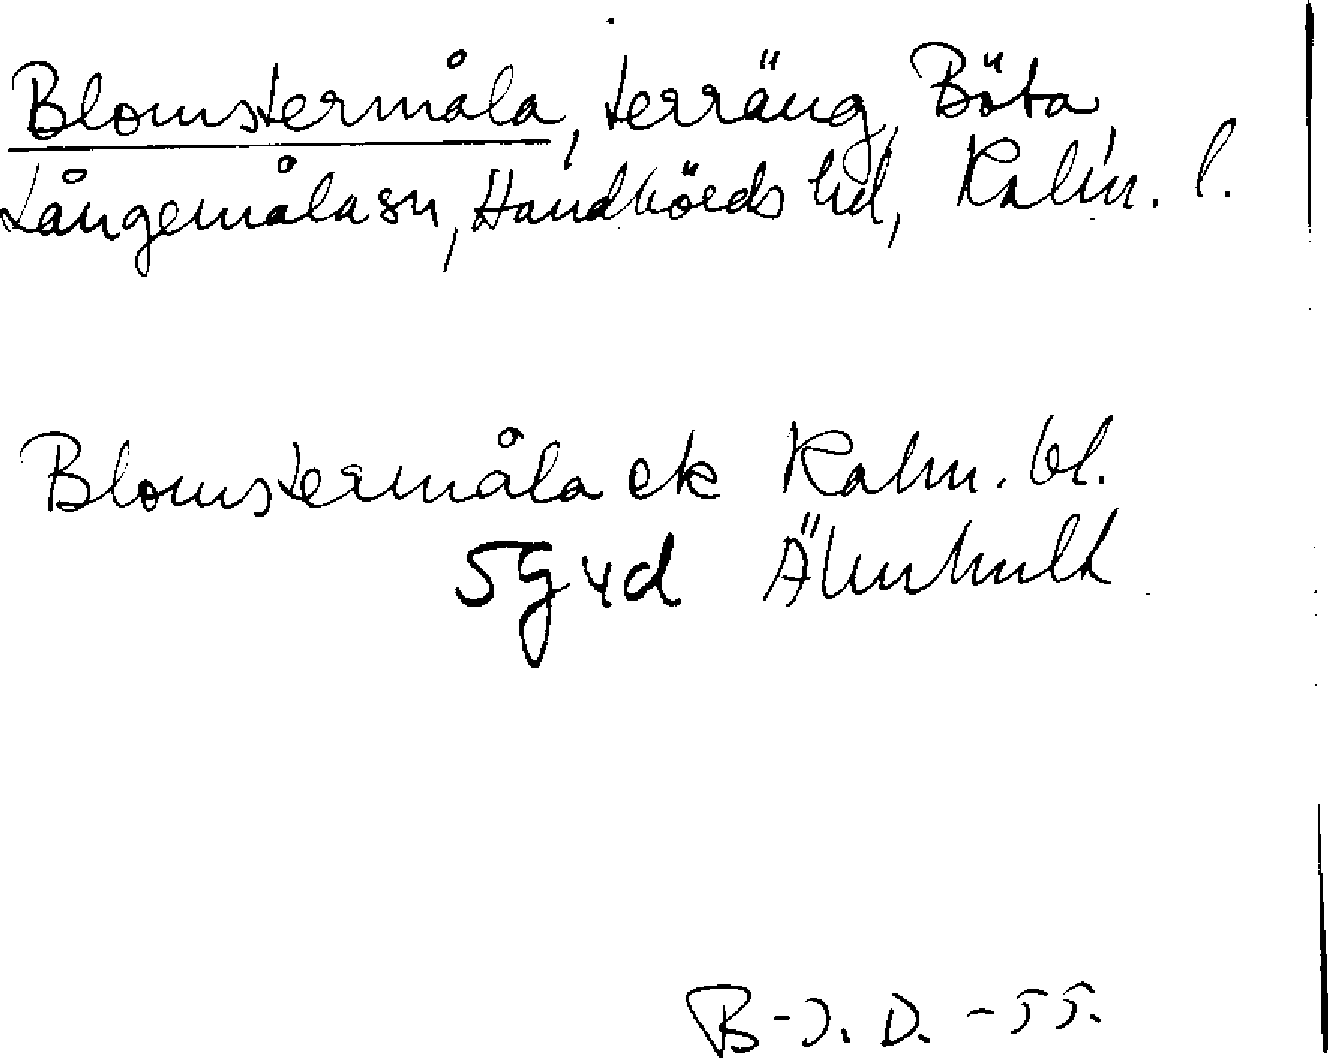 Blomstermåla, terräng, Böta,
Långemåla sn, Handbörds hd, Kalm. l.
Blomstermåla ek Kalm. bl.
5G yd Älmhult
B-J. D. -55.